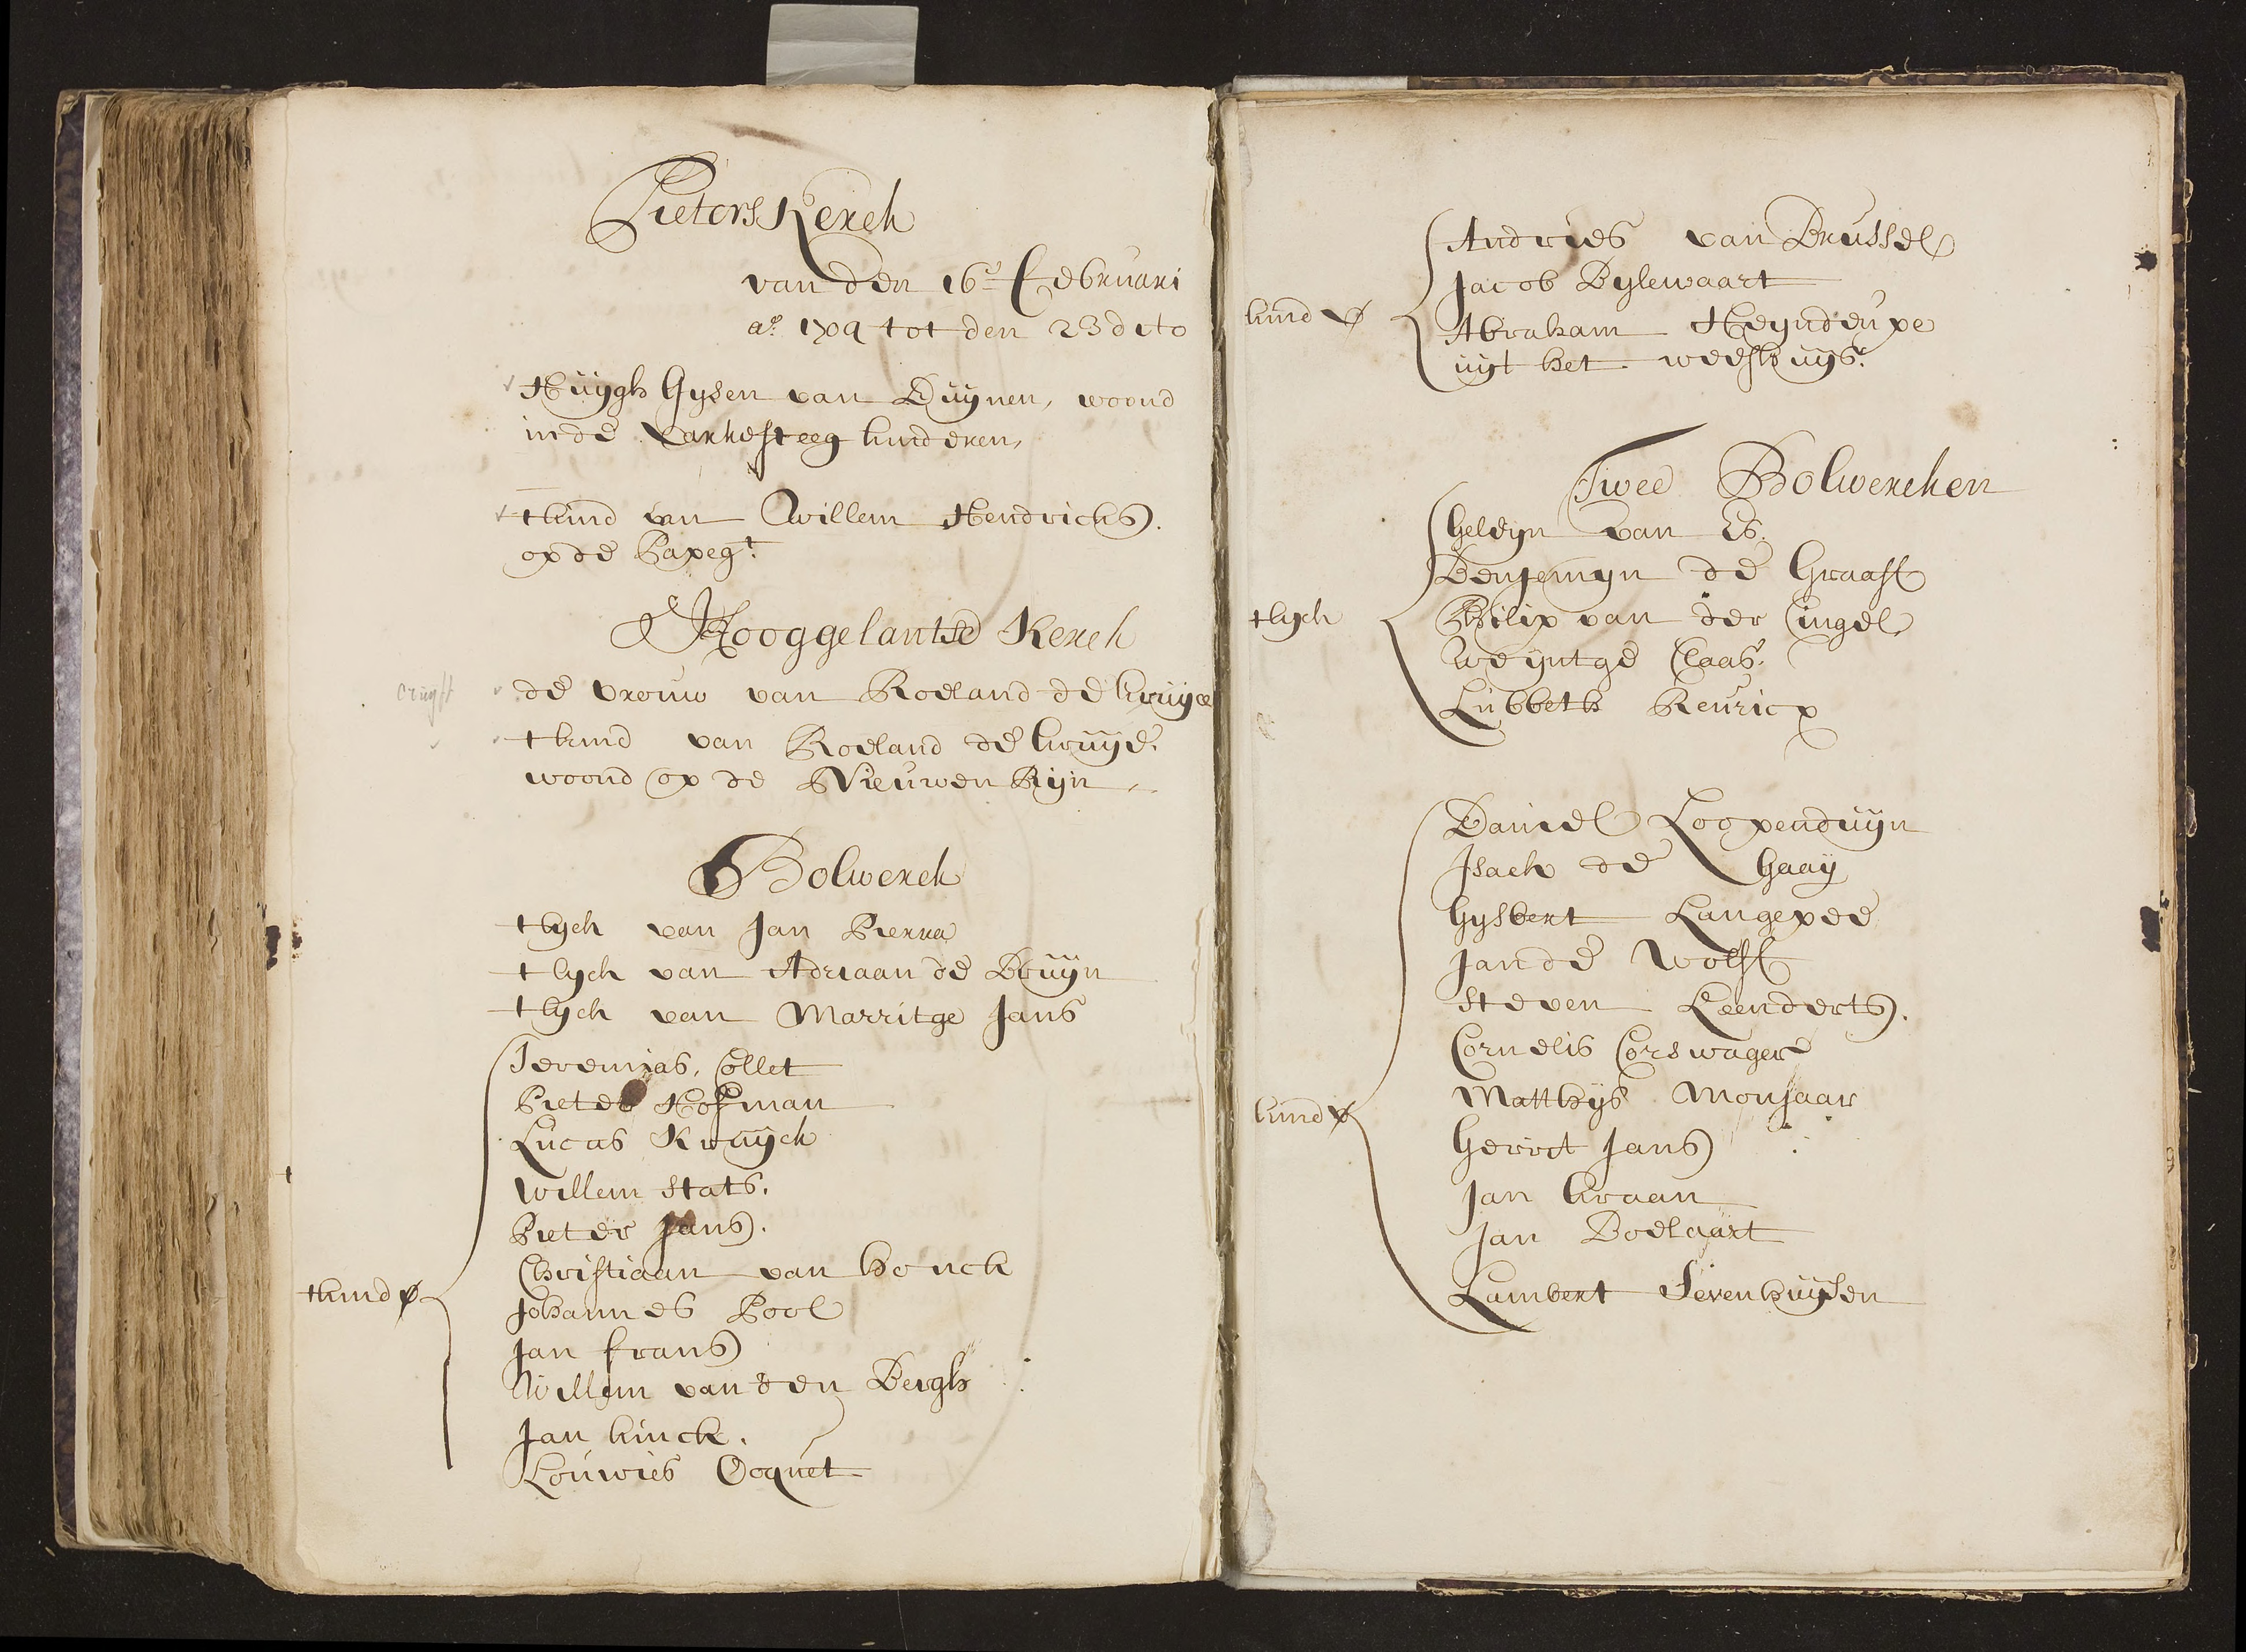 Pieters Kerck
van den 16e Februari
ao 1709 tot den 23 dito
Huijgh Gysen van Duijnen, woond
in de Varkesteeg kinderen,
tkind van Willem Hendricks.
op de Papegt.
Hooggelantse Kerck
cruyff
de vrouw van Roeland de kruyve
tkind van Roeland de kruyve.
woond op de Nieuwen Rijn
Bolwerck
tlyck van Jan Pierra
tlyck van Adriaan de Bruijn
tlyck van Marritge Jans
Jeremias Collet
Pieter Hofman
Lucas Kruijck
Willem Stats.
Pieter Jans.
Christiaan van honck
tkind
Johannes Pool
Jan frans
Willem van den Bergh
Jan kinck.
Louwies Coquet
Andries van Brussel
Jacob Bylewaart
kind
Abraham Heyndeupe
uyt het weeshuijs.
Twee Bolwercken
Geleyn van Es.
Benjemyn de Graaff
tlyck
Philip van der Cingel
Weyntge Claas.
Lubbeth Reuricx
Daniel Loopenduijn
Isack de Gaaij
Gysbert Langepee
Jan de Wolff
Steven Leenderts.
Cornelis Corswager
kind
Matthijs Monjaar
Gerrit Jans
Jan kraan
Jan Boelaart
Lambert Sevenhuijsen